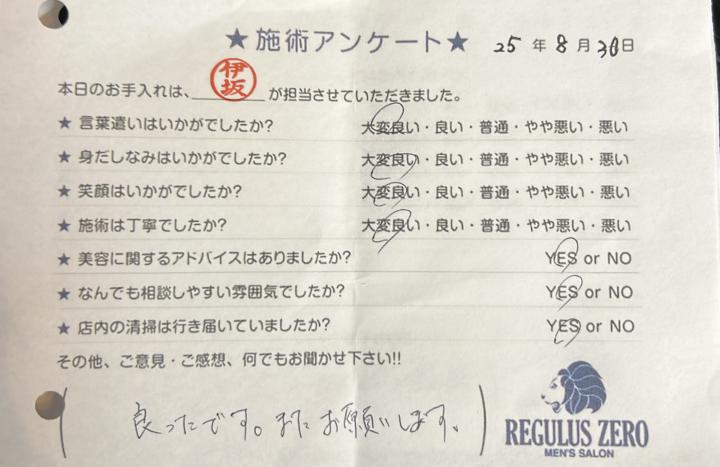 ★施術アンケート★ 25年8月30日
本日のお手入れは、伊坂が担当させていただきました。
★ 言葉遣いはいかがでしたか? 大変良い・良い・普通・やや悪い・悪い
★ 身だしなみはいかがでしたか? 大変良い・良い・普通・やや悪い・悪い
★ 笑顔はいかがでしたか? 大変良い・良い・普通・やや悪い・悪い
★ 施術は丁寧でしたか? 大変良い・良い・普通・やや悪い・悪い
★ 美容に関するアドバイスはありましたか? YES or NO
★ なんでも相談しやすい雰囲気でしたか? YES or NO
★ 店内の清掃は行き届いていましたか? YES or NO
その他、ご意見・ご感想、何でもお聞かせ下さい!!
良ったです。またお願いします。
REGULUS ZERO
MEN'S SALON